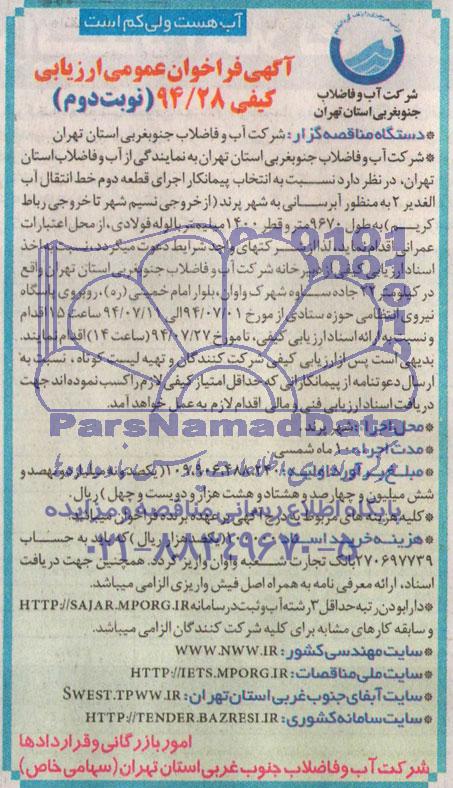 آب هست ولی کم است
شرکت آب و فاضلاب
جنوبغربی استان تهران
آگهی فراخوان عمومی ارزیابی
کیفی ۹۴/۲۸ (نوبت دوم)
*دستگاه مناقصه گزار: شرکت آب و فاضلاب جنوبغربی استان تهران
*شرکت آب و فاضلاب جنوبغربی استان تهران به نمایندگی از آب و فاضلاب استان
تهران، در نظر دارد نسبت به انتخاب پیمانکار اجرای قطعه دوم خط انتقال آب
الغدیر ۲ به منظور آبرسانی به شهر پرند (از خروجی نسیم شهر تا خروجی رباط
کریم) به طول ۹۶۷۰ متر و قطر ۱۴۰۰ میلیمتر با لوله فولادی، از محل اعتبارات
عمرانی اقدام نماید، لذا از شرکتهای واجد شرایط دعوت میگردد نسبت به اخذ
اسناد ارزیابی کیفی از دبیرخانه شرکت آب و فاضلاب جنوبغربی استان تهران واقع
در کیلومتر جاده ساوه شهرک واوان، بلوار امام خمینی (ره)، روبروی پاسگاه
نیروی انتظامی حوزه ستادی از مورخ ۹۴/۰۷/۰۱ الی ساعت ۱۵ اقدام
و نسبت به ارائه اسناد ارزیابی کیفی، تا مورخ ۹۴/۰۷/۲۷ (ساعت ۱۴) اقدام نمایند.
بدیهی است پس از ارزیابی کیفی شرکت کنندگان و تهیه لیست کوتاه، نسبت به
ارسال دعوتنامه از پیمانکارانی که حداقل امتیاز کیفی لازم را کسب نموده اند جهت
دریافت اسناد ارزیابی فنی و مالی اقدام لازم به عمل خواهد آمد.
*محل اجرا: شهر پرند
*مدت اجرا: ۱۰ ماه شمسی
*مبلغ برآورد اولیه: ۱۰۹،۹۰۶،۴۸۸،۲۴۰ (یکصد و نه میلیارد و نهصد و
شش میلیون و چهارصد و هشتاد و هشت هزار و دویست و چهل) ریال.
*کلیه هزینه های مربوط به درج آگهی بر عهده برنده فراخوان میباشد.
*هزینه خرید اسناد: ریال) که باید به حساب
۲۷۰۶۹۷۷۳۹ بانک تجارت شعبه واوان واریز گردد. همچنین جهت دریافت
اسناد، ارائه معرفی نامه به همراه اصل فیش واریزی الزامی میباشد.
*دارا بودن رتبه حداقل ۳ رشته آب و ثبت در سامانه HTTP://SAJAR.MPORG.IR
و سابقه کارهای مشابه برای کلیه شرکت کنندگان الزامی میباشد.
*سایت مهندسی کشور: WWW.NWW.IR
*سایت ملی مناقصات: HTTP://IETS.MPORG.IR
*سایت آبفای جنوب غربی استان تهران: SWEST.TPWW.IR
*سایت سامانه کشوری: HTTP://TENDER.BAZRESI.IR
امور بازرگانی و قراردادها
شرکت آب و فاضلاب جنوب غربی استان تهران (سهامی خاص)
ParsNamadData
پایگاه اطلاع رسانی مناقصه و مزایده
۰۲۱-۸۸۳۴۹۶۷۰-۵